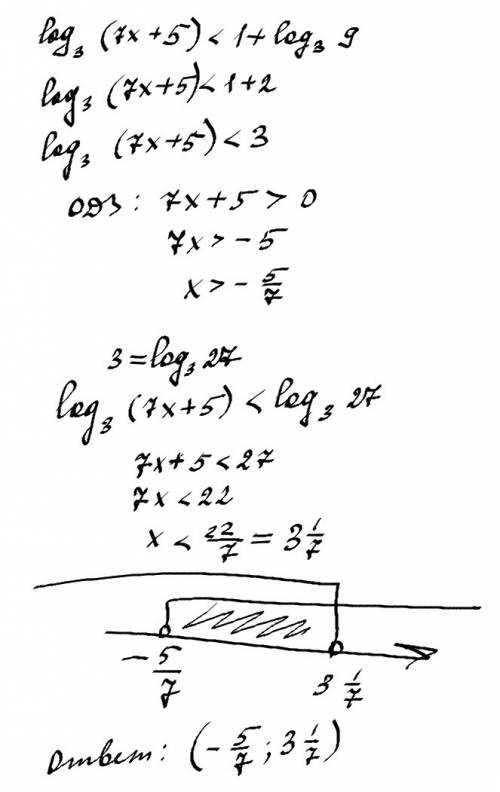 log₃ (7x+5) < 1 + log₃ 9
log₃ (7x+5) < 1+2
log₃ (7x+5) < 3
ОДЗ: 7x+5 > 0
7x > -5
x > - 5/7
3 = log₃ 27
log₃ (7x+5) < log₃ 27
7x+5 < 27
7x < 22
x < 22/7 = 3 1/7
- 5/7 3 1/7
ответ: (- 5/7 ; 3 1/7)